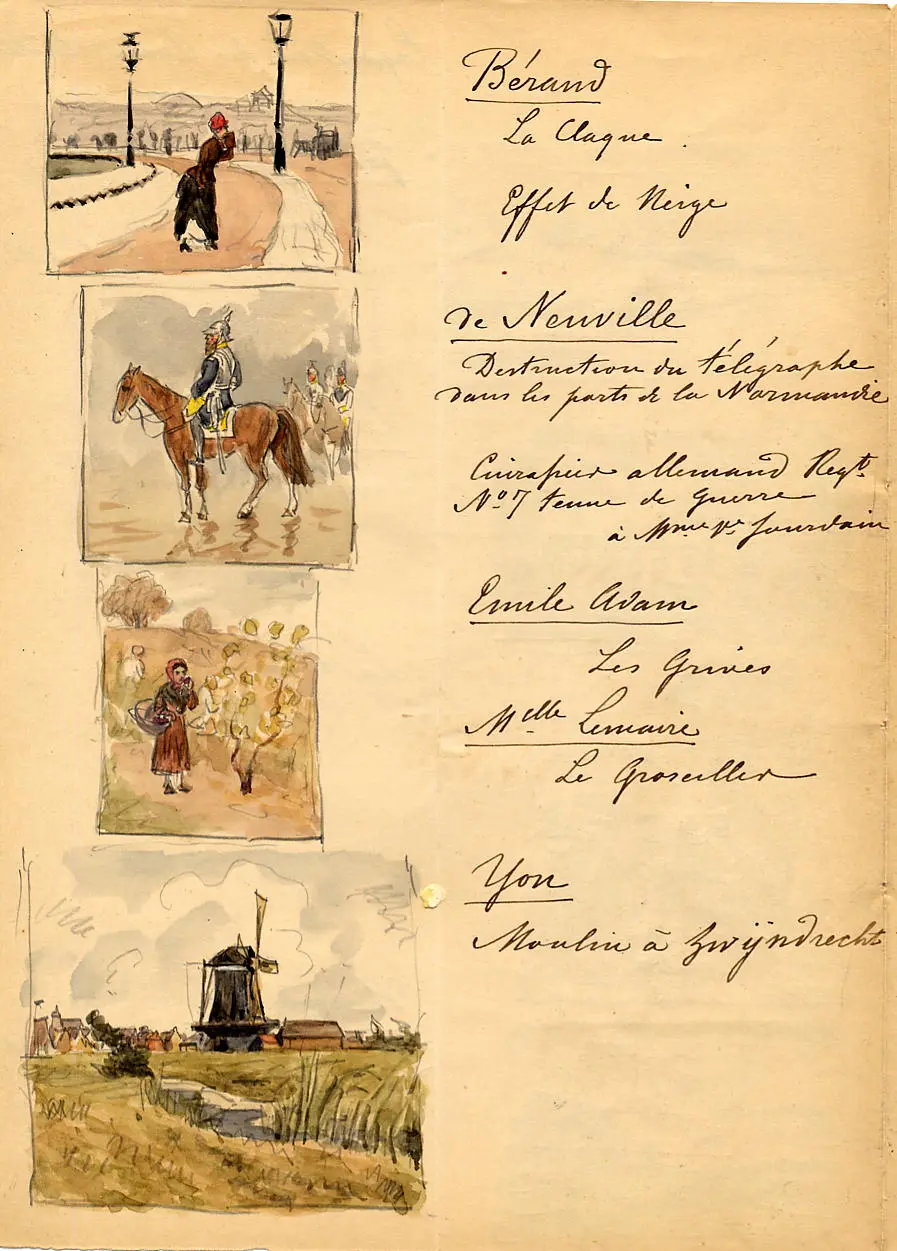 Béraud
La Claque
Effet de Neige
de Neuville
Destruction du télégraphe
dans les ports de la Normandie
Cuirassier allemand Regt.
No. 7 tenue de guerre
à Mme Ve. Jourdain
Emile Adam
Les Grives
Melle Lemaire
Le Groseiller
Yon
Moulin à Zwijndrecht